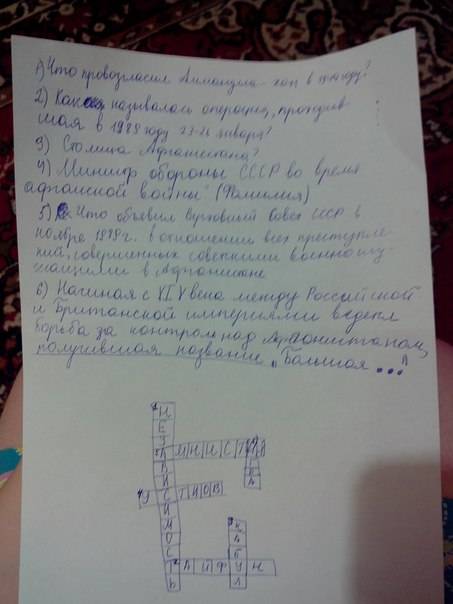 1) Что провозгласил хан в году?
2) Как называлась операция, проходив-
шая в 1989 году 23-26 января?
3) Столица Афганистана?
4) Министр обороны СССР во время
афганской войны (Фамилия)
5) Что объявил Верховный Совет СССР в
ноябре 1989 г. в отношении всех преступле-
ний, совершенных советскими военнослу-
жащими в Афганистане
6) Начиная с века между Российской
и Британской империями велась
борьба за контроль над Афганистаном,
получившая название „Большая ..."
1 Н
Е
З
5 А М Н И С Т И Я
В Г
И Р
4 У С Т И Н О В А
И
М 3 К
О А
С Б
2 Т А Й Ф У Н
Ь Л